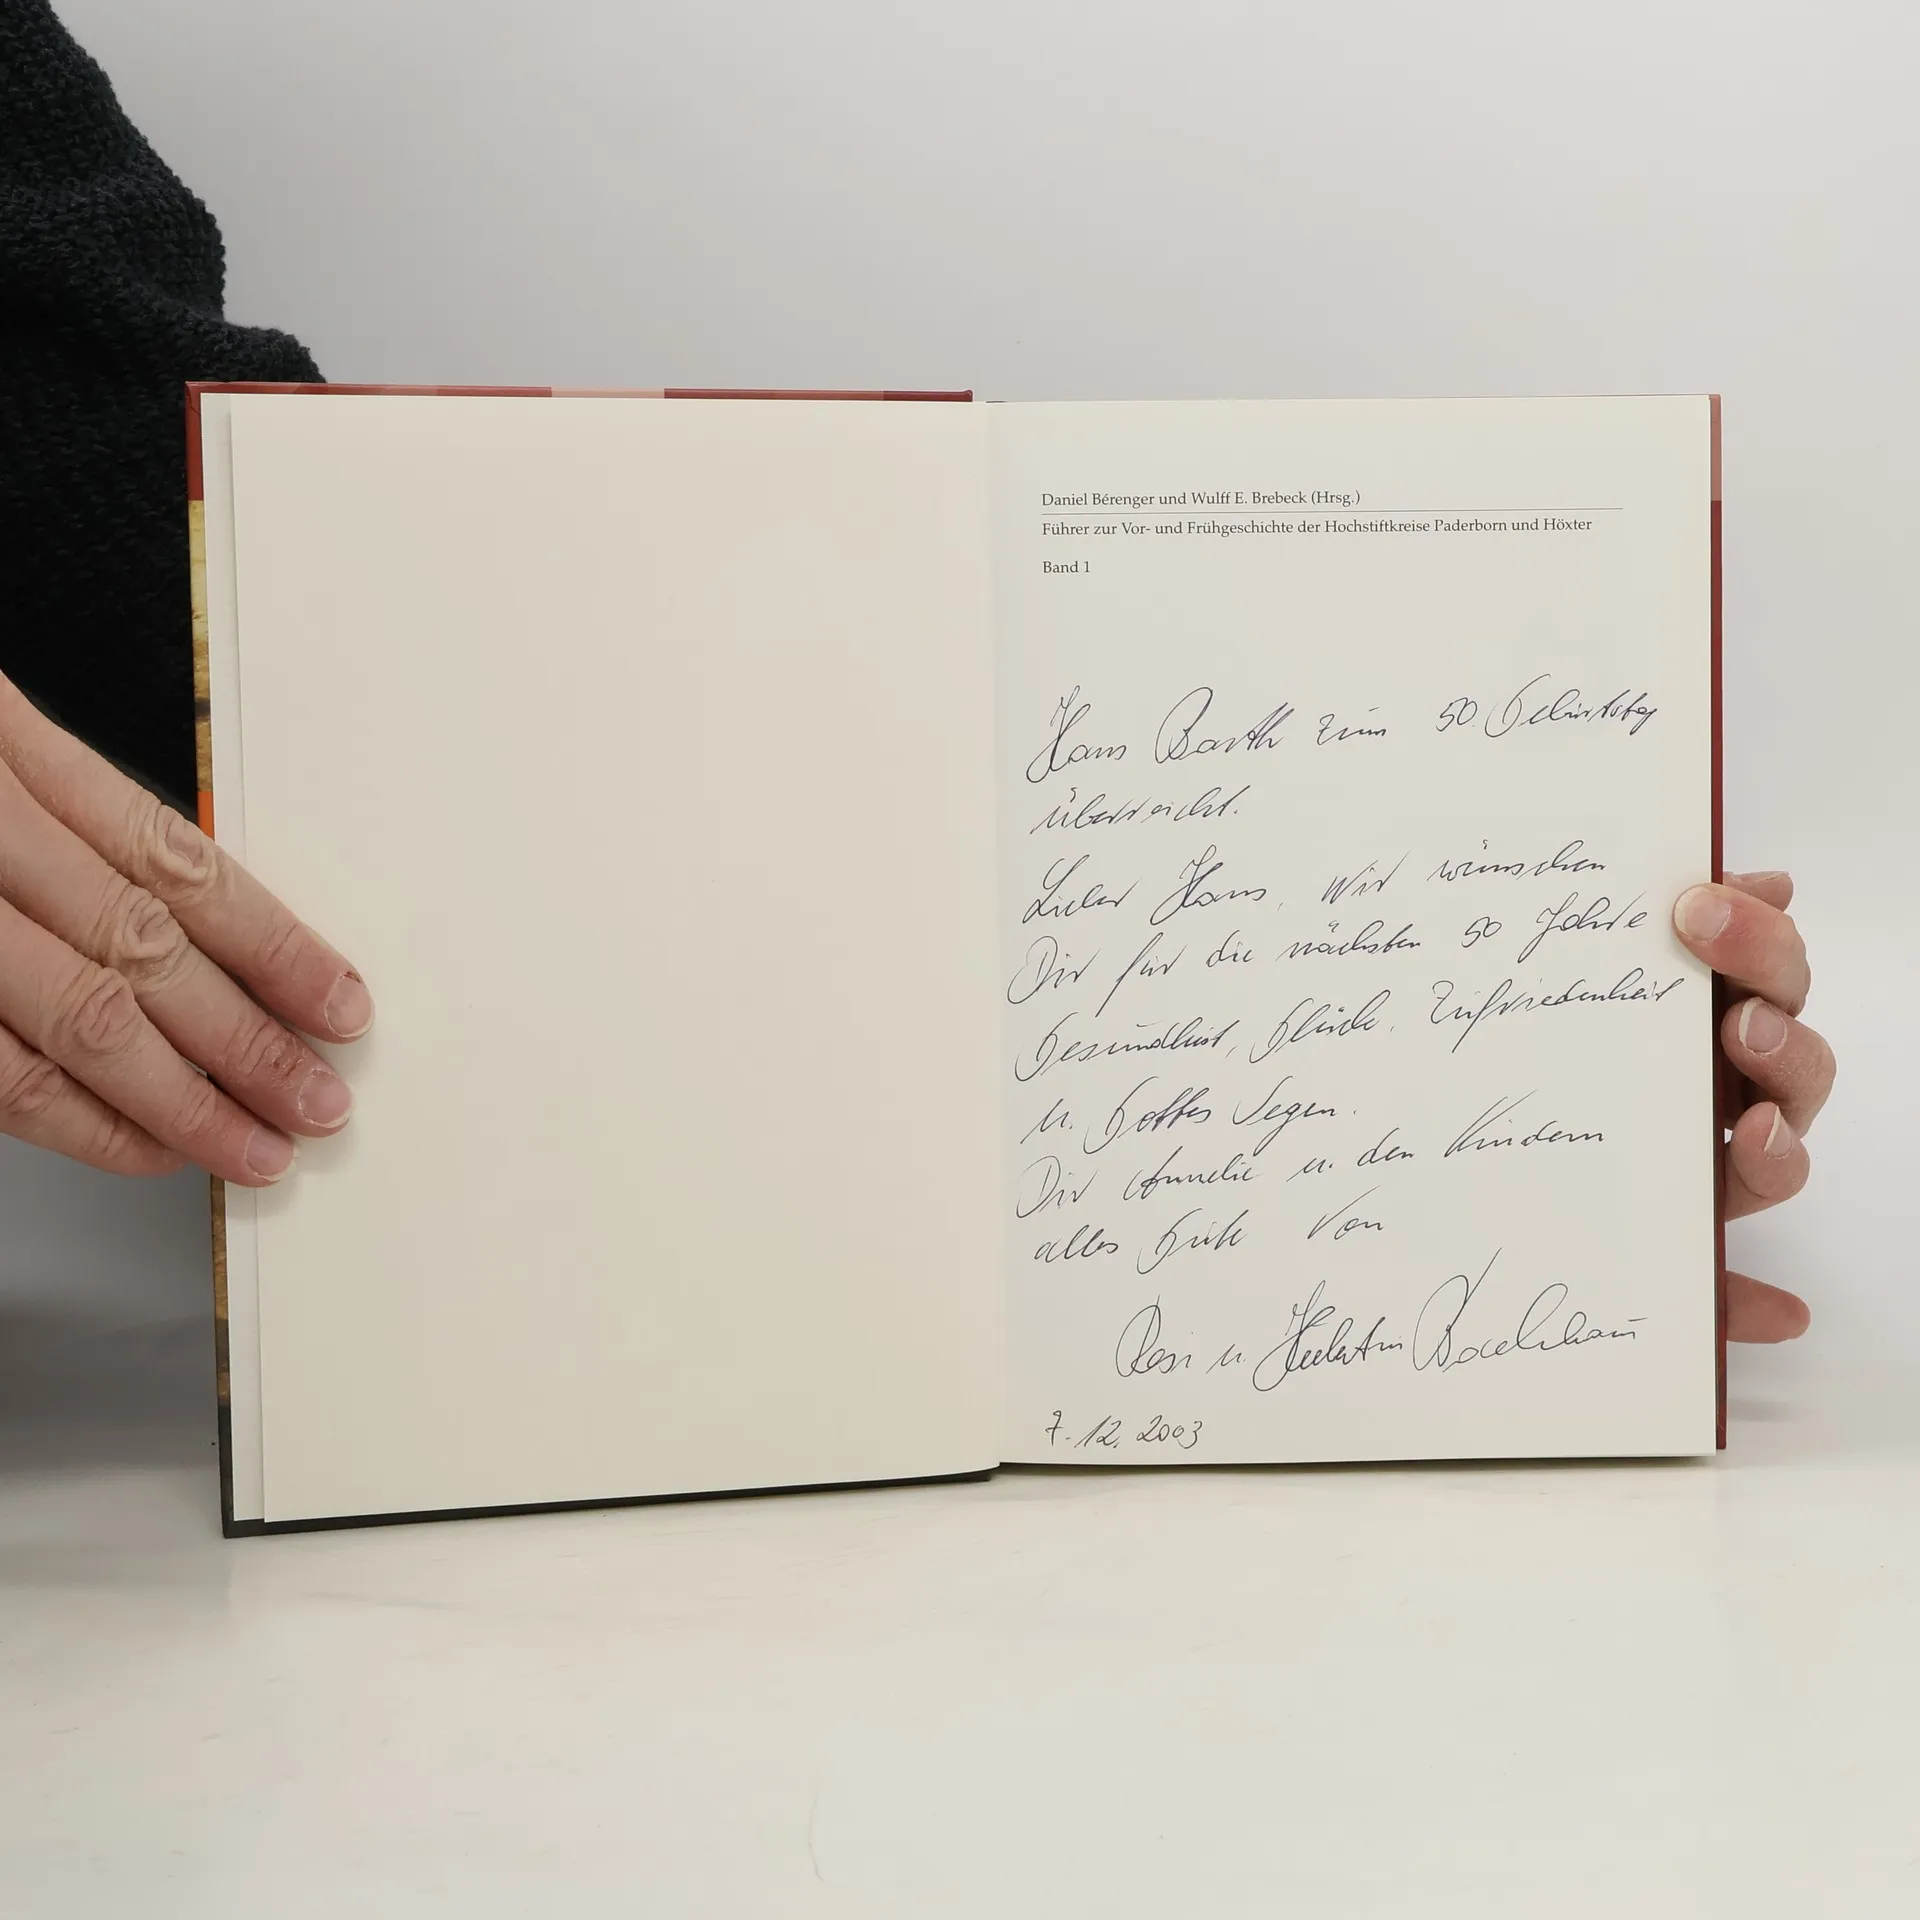 Daniel Bérenger und Wulff E. Brebeck (Hrsg.)
Führer zur Vor- und Frühgeschichte der Hochstiftkreise Paderborn und Höxter
Band 1
Hans Barth zum 50. Geburtstag
überreicht.
Lieber Hans, wir wünschen
Dir für die nächsten 50 Jahre
Gesundheit, Glück, Zufriedenheit
u. Gottes Segen.
Dir Annelie u. den Kindern
alles Gute von
Rosi u.
7.12.2003